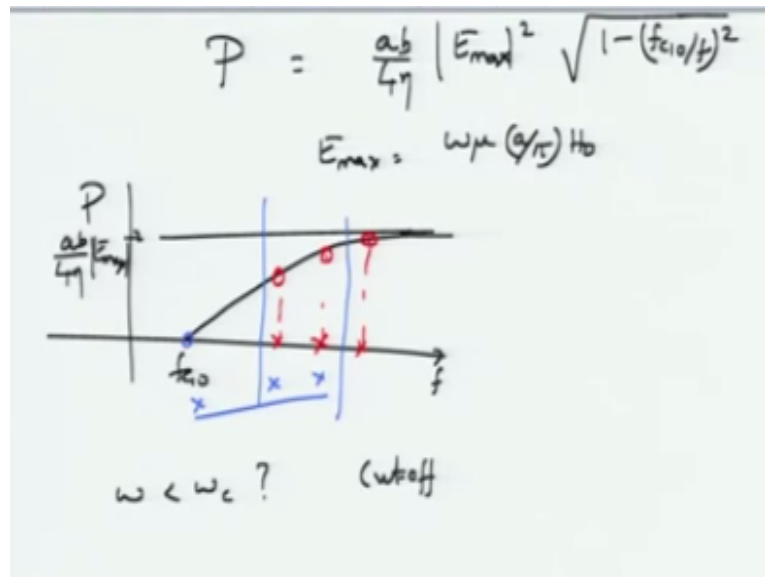 P = ab/4η |Emax|² √1-(fc10/f)²
Emax = ωμ (a/π) H0
P
ab/4η |Emax|²
fc10
f
ω < ωc ? Cutoff